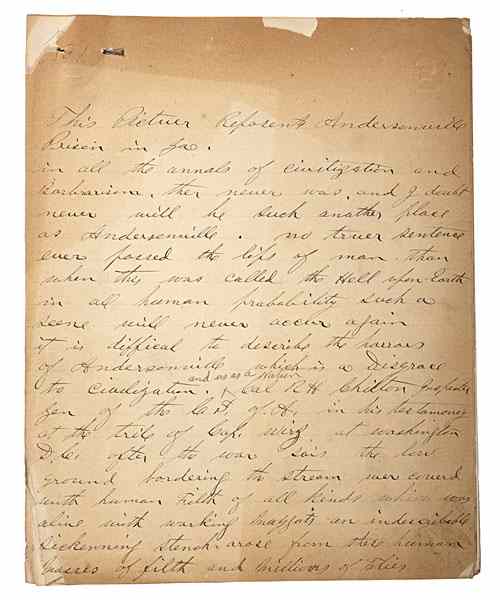 This Pictuer Reposents Andersonville
Prison in Ga.
in all the annals of civilization and
Barbarism, ther never was, and I doubt
never will be such another place
as Andersonville. no truer sentence
ever passed the lips of man than
when this was called the Hell upon Earth
in all human probability such a
scene will never accur again
it is diffical to describe the horrors
of Andersonville which is a Disgrace
and us as a Nation
to civilization. Col R H Chilton Inspector
Gen of the C.S. of A. in his testamoney
at the trile of Cap. Wirz at washington
D.C. after the war sais the low
ground bordering the stream wer coverd
with human Filth of all kinds which was
alive with working maggots an indescribable
Sickenning stench arose from these human
masses of filth and millions of Flies